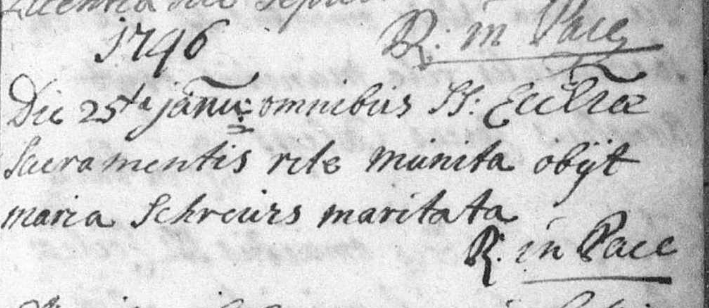 R: in Pace
1746
Die 25ta janu: omnibus SS: Eccliæ
Sacramentis rite munita obijt
maria Schreurs maritata
R: in Pace